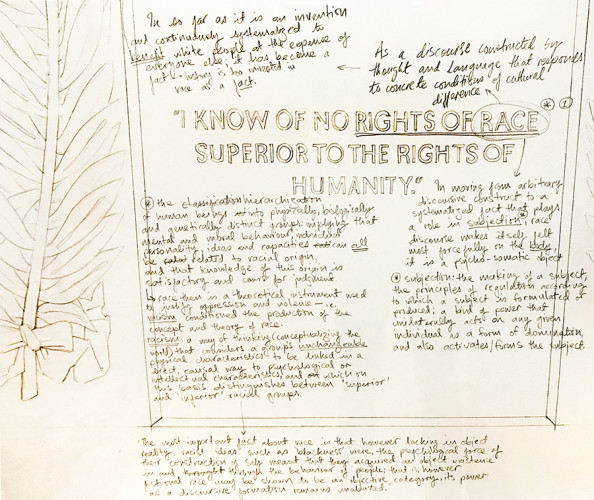 In so far as it is an invention
and continuously systematized to
benefit white people at the expense of
everyone else, it has become a
fact - history is too invested in
race as a fact.
As a discourse constructed by
thought and language that responds
to concrete conditions of cultural
difference
* 1
"I KNOW OF NO RIGHTS OF RACE
SUPERIOR TO THE RIGHTS OF
HUMANITY."
* the classification hierarchization
of human beings into physically, biologically
and genetically distinct groups: implying that
mental and moral behaviour, individual
personality, ideas and capacities can all
be related to racial origin,
and that knowledge of this origin is
satisfactory and cause for judgment.
↳ race then is a theoretical instrument used
to justify oppression and violence - i.e.
racism conditioned the production of the
concept and theory of race.
racism: a way of thinking (conceptualizing the
world) that considers a groups unchangeable
physical characteristics to be linked in a
direct, causal way to psychological or
intellectual characteristics, and which on
this basis distinguishes between 'superior'
and 'inferior' racial groups.
In moving from arbitrary
discursive construct to a
systematized fact that plays
a role in subjection * race
discourse makes itself felt
most forcefully on the body,
it is a psycho-somatic object
* subjection: the making of a subject,
the principles of regulation according
to which a subject is formulated or
produced; a kind of power that
unilaterally acts on any given
individual as a form of domination,
and also activates/forms the subject.
'The most important fact about race is that however lacking in object
reality, racist ideas such as 'blackness' were, the psychological force of
their construction of self meant that they acquired an object existence
in and through the behaviour of people; that is, however
fictional race may be shown to be an objective category, its power
as a discursive formation remains unabated.'